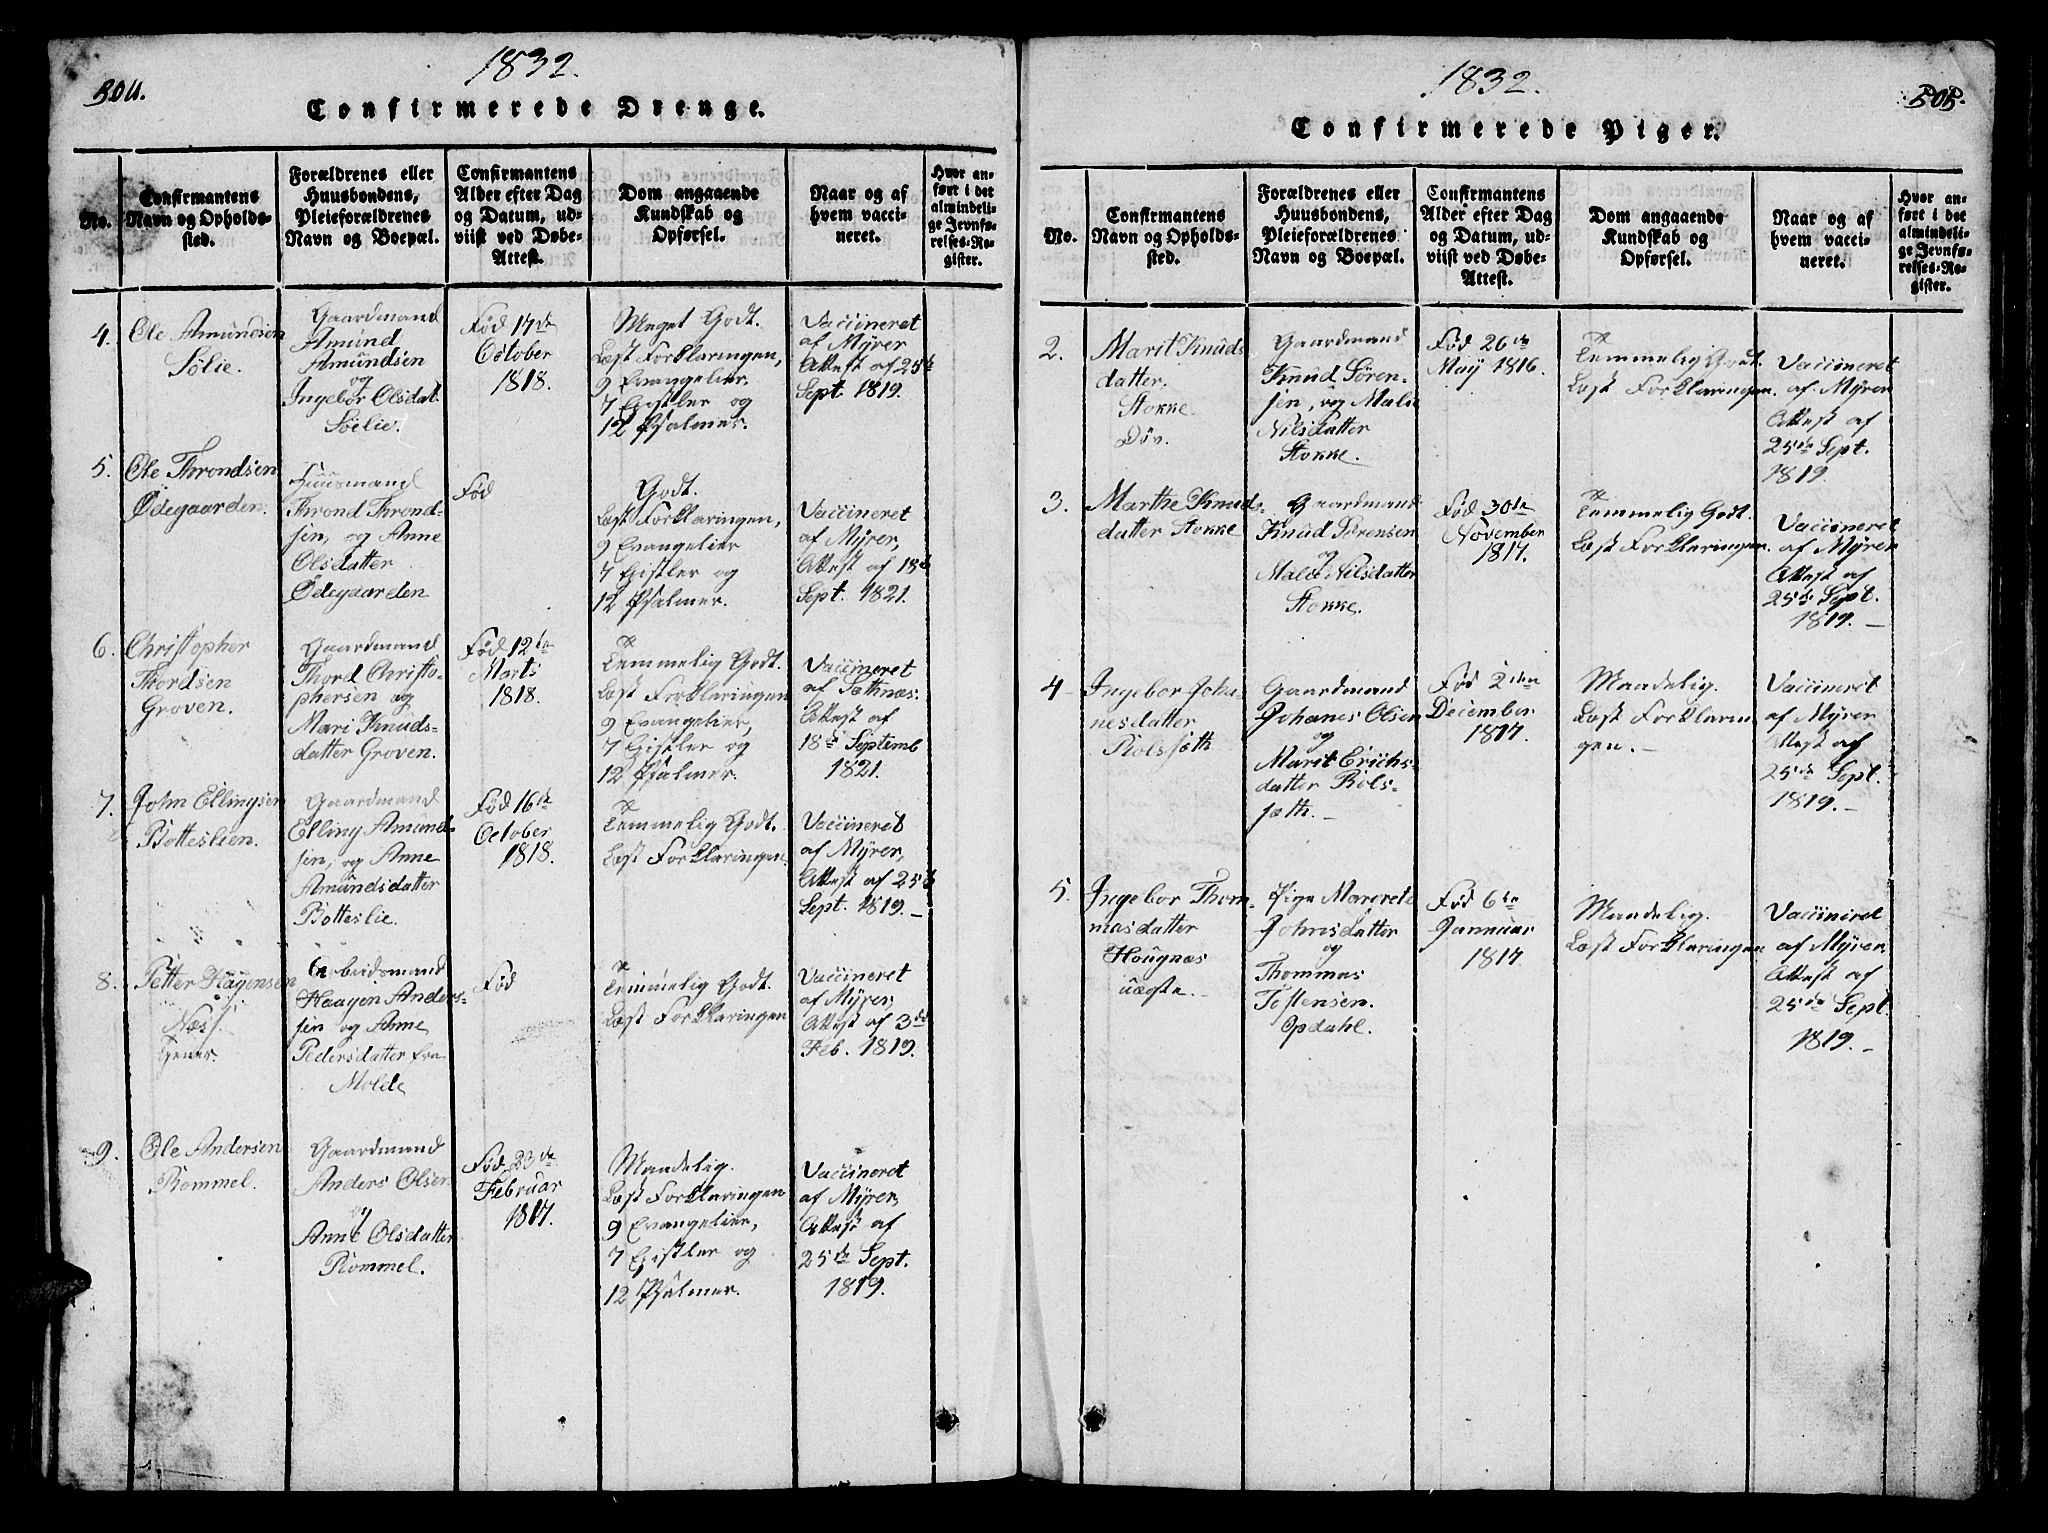 304.
1832.
Confirmerede Drenge.
No.
Confirmantens
Navn og Opholds-
sted.
Forældrenes eller
Huusbondens,
Pleieforældrenes
Navn og Boepæl.
Confirmantens
Alder efter Dag
og Datum, ud-
viist ved Døbe-
Attest.
Dom angaaende
Kundskab og
Opførsel.
Naar og af
hvem vacci-
neret.
Hvor an-
ført i det
almindeli-
ge Jevnfø-
relses-Re-
gister.
4.
Ole Amundsen
Sølie.
Gaardmand
Amund
Amundsen
og
Ingebor Olsdat
Soelie.
Fød 17de
October
1818.
Meget Godt.
Læst Forklaringen,
9 Evangelier
7 Epistler og
12 Psalmer.
Vaccineret
af Myrer
Attest af 25de
Sept. 1819.
5.
Ole Throndsen
Ødegaarden.
Huusmand
Thrond Thrond-
sen, og Anne
Olsdatter
Ødegaarden
Fød
Godt.
Læst Forklaringen,
9 Evangelier
7 Epistler og
12 Psalmer.
Vaccineret
af Myrer,
Attest af 18de
Sept. 1821.
6.
Christopher
Thordsen
Groven.
Gaardmand
Thord Christo-
phersen og
Mari Knuds-
datter Groven.
Fød 12te
Marts
1818.
Temmelig Godt.
Læst Forklaringen
9 Evangelier,
7 Epistler og
12 Psalmer.
Vaccineret
af Sothnæs:
Attest af
18de Septemb
1821.
7.
John Ellingsen
Botteslien.
Gaardmand
Elling Amund-
sen, og Anne
Amundsdatter
Botteslie.
Fød 16de
October
1818.
Temmelig Godt.
Læst Forklaringen.
Vaccineret
af Myrer,
Attest af 25de
Sept. 1819.-
8.
Petter Hagensen
Næs.
Arbeidsmand
Haagen Anders-
sen og Anne
Pedersdatter fra
Molde
Fød
Temmelig Godt.
Læst Forklaringen
Vaccineret
af Myrer,
Attest af 3de
Feb. 1819.
9.
Ole Andersen
Rommel.
Gaardmand
Anders Olsen
og
Anne Olsdatter
Rommel.
Fød 23de
Februar
1817.
Maadelig.
Læst Forklaringen
9 Evangelier,
7 Epistler og
12 Psalmer.
Vaccineret
af Myrer,
Attest af
25de Sept.
1819.
1832.
505.
Confirmerede Piger.
No.
Confirmantens
Navn og Opholds-
sted.
Forældrenes eller
Huusbondens,
Pleieforældrenes
Navn og Boepæl.
Confirmantens
Alder efter Dag
og Datum, ud-
viist ved Døbe-
Attest.
Dom angaaende
Kundskab og
Opførsel.
Naar og af
hvem vacci-
neret.
Hvor an-
ført i det
almindeli-
ge Jevnfø-
relses-Re-
gister.
2.
Marit Knuds
datter.
Stokke
Døv.
Gaardmand
Knud Søren-
sen, og Malie
Nilsdatter
Stokke.
Fød 26de
May 1816.
Temmelig Godt.
Læst Forklaringen.
Vaccineret
af Myrer
Attest af
25de Sept.
1819.
3.
Marthe Knuds-
datter Stokke
Gaardmand
Knud Sørensen
og
Male Nilsdatter
Stokke.
Fød 30te
November
1817.
Temmelig Godt.
Læst Forklaringen.
Vaccineret
af Myrer
Attest af
25de Sept.
1819.-
4
Ingebor Joha-
nesdatter
Rolsfæth
Gaardmand
Johanes Olsen
og
Marit Erichs-
datter Rols-
sæth.-
Fød 2den
December
1817.
Maadelig.
Læst Forklarin
gen.-
Vaccineret
af Myrer
Attest af
25de Sept.
1819.-
5.
Ingebor Thom-
masdatter
Hougnæs
uægte.-
Pige Marrete
Johnsdatter
og
Thommas
Tostensen.
Opdahl.
Fød 6te
Januar
1817
Maadelig.
Læst Forklaringen
Vaccineret
af Myrer.
Attest af
25de Sept.
1819.-